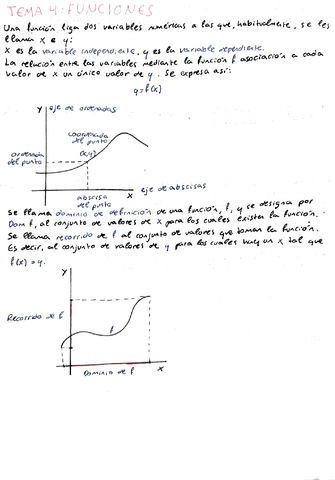 TEMA 4: FUNCIONES
Una función liga dos variables numéricas a las que, habitualmente, se les
llama x e y:
x es la variable independiente, y es la variable dependiente.
La relación entre las variables mediante la función f asociación a cada
valor de x un único valor de y. Se expresa así:
y=f(x)
y
eje de ordenadas
coordenada
del punto
(x,y)
ordenada
del punto
abscisa
del punto
x
eje de abscisas
Se llama dominio de definición de una función, f, y se designa por
Dom f, al conjunto de valores de x para los cuales existe la función.
Se llama recorrido de f al conjunto de valores que toman la función.
Es decir, al conjunto de valores de y para los cuales hay un x tal que
f(x)=y.
y
Recorrido de f
f
Dominio de f
x